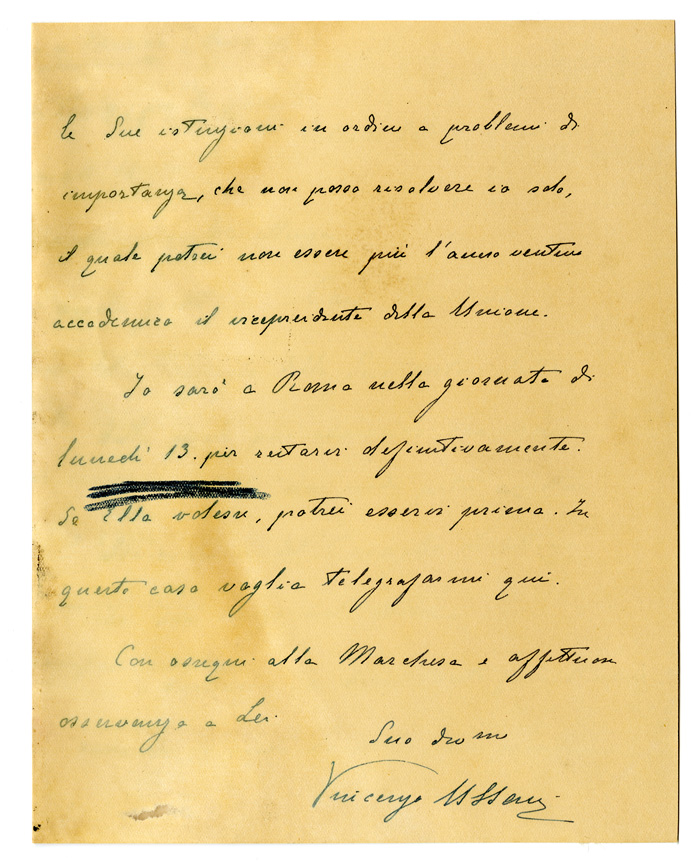 le Sue istruzioni in ordine a problemi di
importanza, che non posso risolvere io solo,
il quale potrei non essere più l'anno venturo
accademico il vicepresidente della Unione.
Io sarò a Roma nella giornata di
lunedì 13. per restarvi definitivamente.
Se Ella volesse, potrei esservi prima. In
questo caso voglia telegrafarmi qui.
Con ossequi alla Marchesa e affettuosa
osservanza a Lei.
Suo dev mo
Vincenzo Ussani